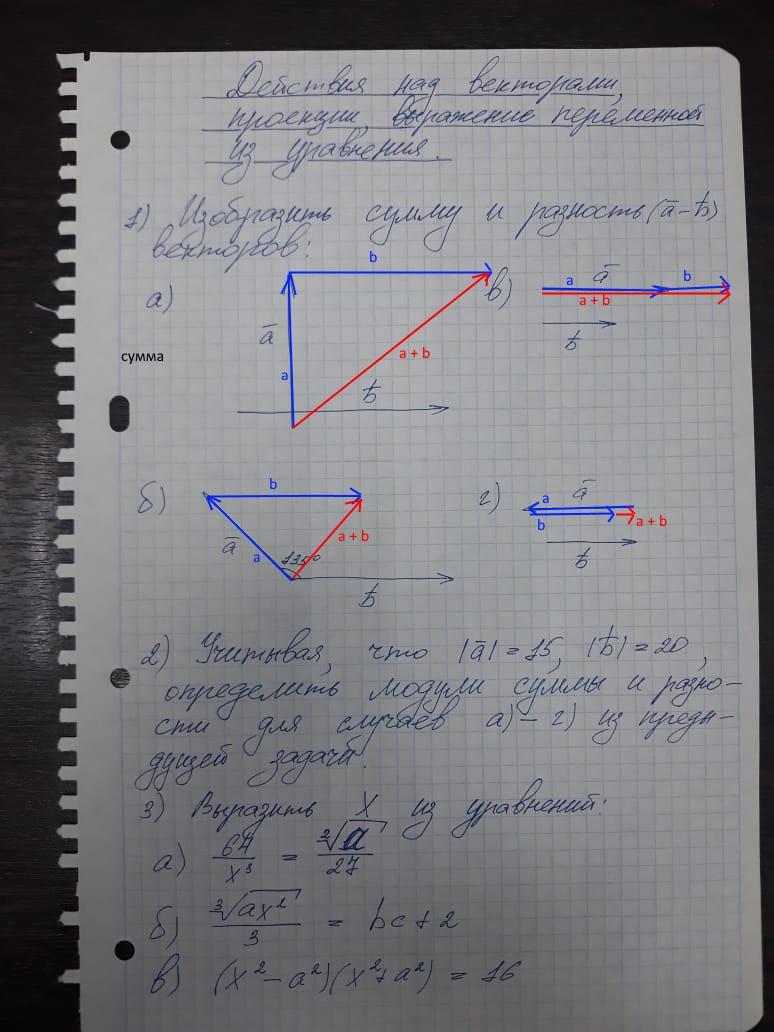 Действия над векторами,
проекции, выражение переменной
из уравнения.
1) Изобразить сумму и разность (a̅ - b̅)
векторов:
а)
b
a̅
a
a + b
b̅
в)
a
a̅
b
a + b
b̅
сумма
б)
b
a̅
a
135°
a + b
b̅
г)
a
a̅
b
a + b
b̅
2) Учитывая, что |a̅| = 15, |b̅| = 20,
определить модули суммы и разно-
сти для случаев а) - г) из преды-
дущей задачи.
3) Выразить X из уравнений:
а) 64/x³ = ∛a/27
б) ∛(ax²)/3 = bc + 2
в) (x² - a²)(x² + a²) = 16